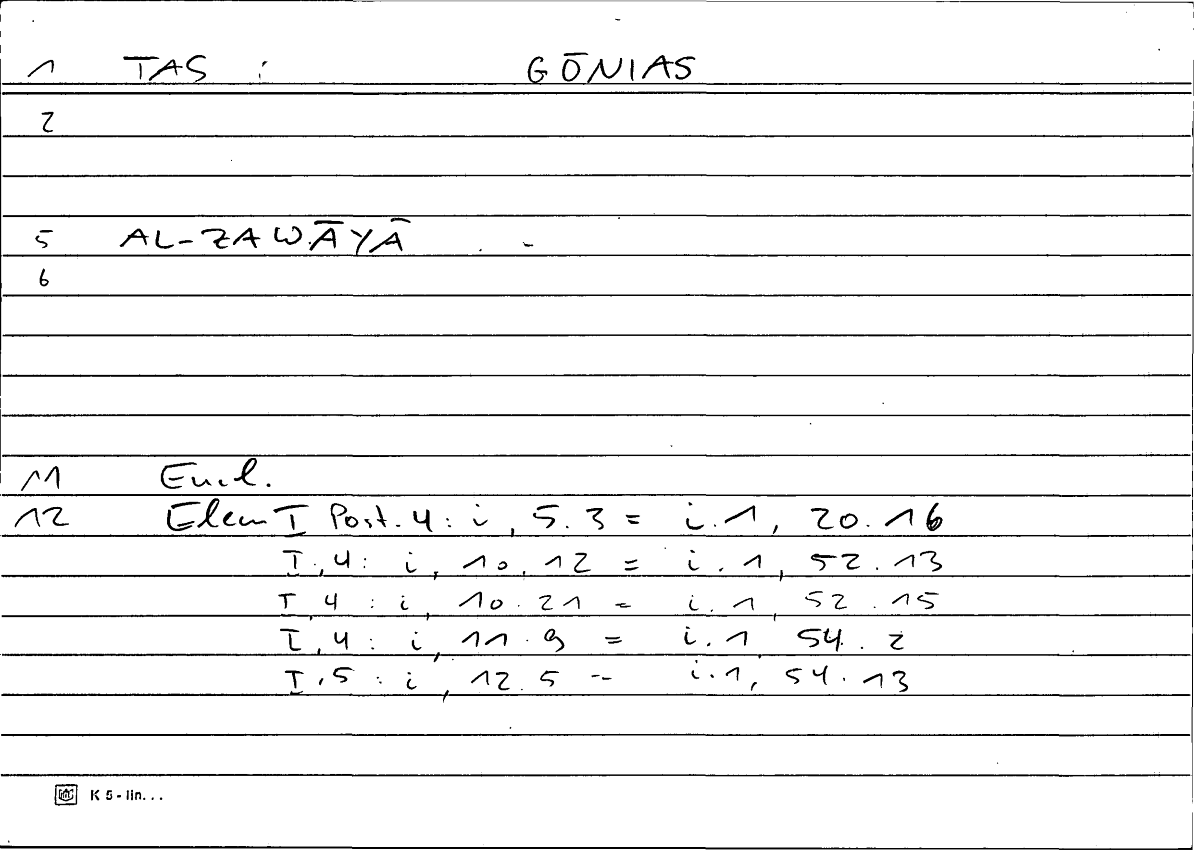 1 TAS : GŌNIAS
2
5 AL-ZAWĀYĀ -
6
11 Eucl.
12 Elem I Post. 4 : i, 5.3 = i.1, 20.16
I, 4 : i, 10.12 = i.1, 52.13
I, 4 : i, 10.21 = i.1, 52.15
I, 4 : i, 11.9 = i.1 54.2
I, 5 : i, 12.5 -- i.1, 54.13
K 5 - lin. . .